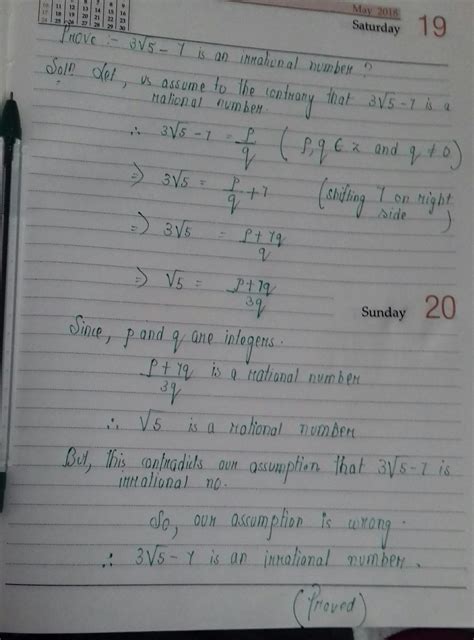 May 2018
Saturday 19
Prove :- 3√5 - 7 is an irrational number ?
Soln Let, us assume to the contrary that 3√5-7 is a
rational number.
∴ 3√5 - 7 = p/q ( p,q ∈ z and q ≠ 0)
=) 3√5 = p/q + 7 (shifting 7 on right
side)
=) 3√5 = p+7q/q
=) √5 = p+7q/3q
Sunday 20
Since, p and q are integers.
p+7q/3q is a rational number
∴ √5 is a rational number
But, this contradicts our assumption that 3√5-7 is
irrational no.
So, our assumption is wrong.
∴ 3√5-7 is an irrational number.
(Proved)